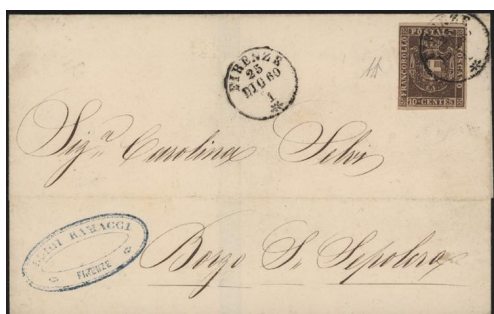 FIRENZE
25
DIC 60
1
FRANCOBOLLO
POSTALE
TOSCANO
10 CENTES
Sig.ª Carolina Selvi
LUIGI RAMAGGI
FIRENZE
Borgo S. Sepolcro